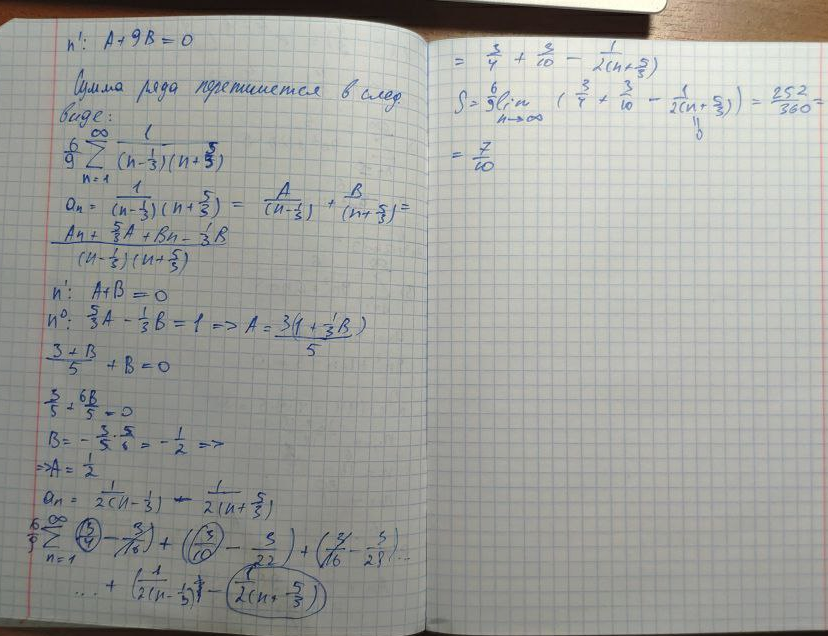 n¹: A+9B=0
Сумма ряда перепишется в след.
виде:
6/9 ∑_{n=1}^{∞} 1/((n-1/3)(n+5/3))
a_n = 1/((n-1/3)(n+5/3)) = A/(n-1/3) + B/(n+5/3) =
(An + 5/3A + Bn - 1/3B)/((n-1/3)(n+5/3))
n¹: A+B=0
n⁰: 5/3A - 1/3B = 1 => A = 3(1+1/3B)/5
(3+B)/5 + B = 0
3/5 + 6B/5 = 0
B = -3/5·5/6 = -1/2 =>
=> A = 1/2
a_n = 1/(2(n-1/3)) - 1/(2(n+5/3))
6/9 ∑_{n=1}^{∞} (3/4 - 3/16) + (3/10 - 3/22) + (3/16 - 3/28)...
... + (1/(2(n-1/3)) - 1/(2(n+5/3)))
= 3/4 + 3/10 - 1/(2(n+5/3))
S = 6/9 lim_{n→∞} (3/4 + 3/10 - 1/(2(n+5/3))) = 252/360 =
0
= 7/10